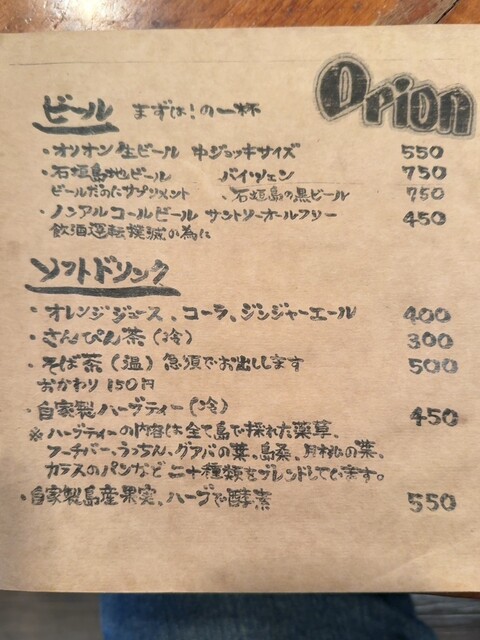 Orion
ビール まずは!の一杯
・オリオン生ビール 中ジョッキサイズ 550
・石垣島地ビール バイツェン 750
ビールだのにサプリメント ・石垣島の黒ビール 750
・ノンアルコールビール サントリーオールフリー 450
飲酒運転撲滅の為に
ソフトドリンク
・オレンジジュース、コーラ、ジンジャーエール 400
・さんぴん茶(冷) 300
・そば茶(温) 急須でお出しします 500
おかわり 150円
・自家製ハーブティー(冷) 450
※ハーブティーの内容は全て島で採れた薬草、
フーチバー、うっちん、グアバの葉、島桑、月桃の葉、
カラスのパンなど二十種類をブレンドしています。
・自家製島産果実、ハーブで酵素 550